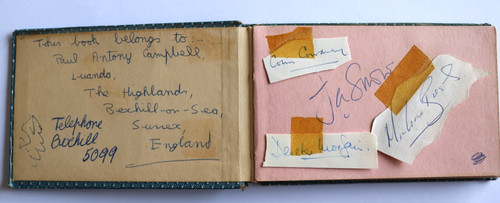 This book belongs to:-
Paul Antony Campbell,
Luando,
The Highlands,
Bexhill-on-Sea,
Sussex,
England
Telephone
Bexhill
5099
Colin Cowdrey
Derek Morgan